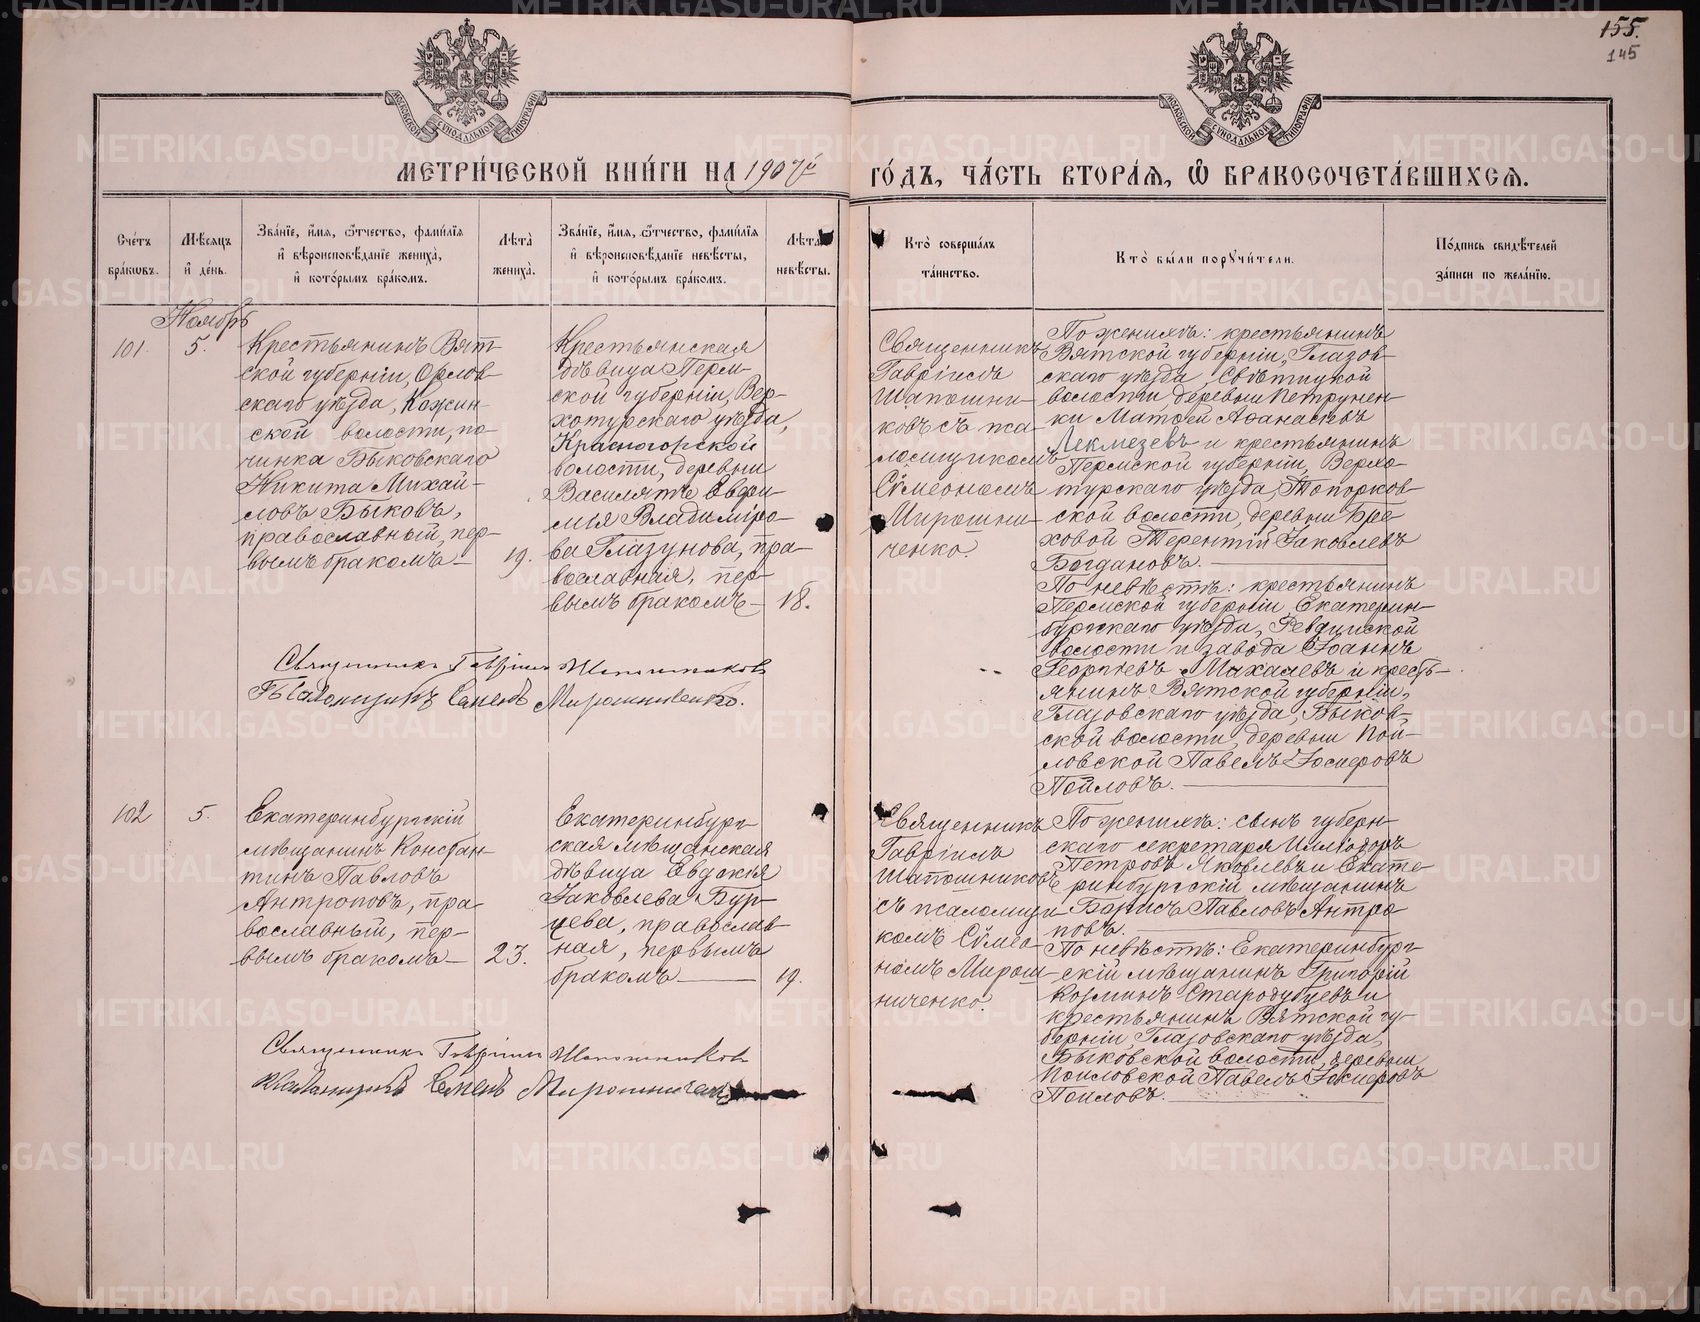 155.
145
МОСКОВСКОЙ СѴНОДАЛЬНОЙ ТИПОГРАФІИ
МОСКОВСКОЙ СѴНОДАЛЬНОЙ ТИПОГРАФІИ
МЕТРИ́ЧЕСКОЙ КНИ́ГИ НА 1907й
ГО́ДЪ, ЧА́СТЬ ВТОРА́Я, Ѽ БРАКОСОЧЕТА́ВШИХСЯ.
Сче́тъ бра́кѡвъ.
Мѣ́сяцъ и҆ де́нь.
Зва́нїе, и҆́мя, ѻ҆́тчество, фами́лїя и҆ вѣроисповѣ́данїе жениха̀, и҆ кото́рымъ бра́комъ.
Лѣ́та жениха̀.
Зва́нїе, и҆́мя, ѻ҆́тчество, фами́лїя и҆ вѣроисповѣ́данїе невѣ́сты, и҆ кото́рымъ бра́комъ.
Лѣ́та невѣ́сты.
Кто̀ соверша́лъ та́инство.
Кто̀ бы́ли порꙋчи́тели.
По́дпись свидѣ́телей за́писи по жела́нїю.
Ноябрь
101.
5.
Крестьянинъ Вят-
ской губерніи, Орлов-
скаго уѣзда, Кожин-
ской волости, по-
чинка Быковскаго
Никита Михай-
ловъ Быковъ,
православный, пер-
вымъ бракомъ
19.
Крестьянская
дѣвица Перм-
ской губерніи, Вер-
хотурскаго уѣзда,
Красногорской
волости, деревни
Василята Евфи-
мія Владиміро-
ва Глазунова, пра-
вославная, пер-
вымъ бракомъ
18.
Священникъ
Гавріилъ
Шапошни-
ковъ съ пса-
ломщикомъ
Сѵмеономъ
Мирошни-
ченко.
По женихѣ: крестьянинъ
Вятской губерніи, Глазов-
скаго уѣзда, Святицкой
волости деревни Петрунен-
ки Матѳей Аѳанасіевъ
Лекмезевъ и крестьянинъ
Пермской губерніи, Верхо-
турскаго уѣзда, Топорков-
ской волости, деревни Бре-
ховой Терентій Іаковлевъ
Богдановъ.
По невѣстѣ: крестьянинъ
Пермской губерніи, Екатерин-
бургскаго уѣзда, Ревдинской
волости и завода Іоаннъ
Георгіевъ Махалевъ и кресть-
янинъ Вятской губерніи,
Глазовскаго уѣзда, Быков-
ской волости, деревни Пой-
ловской Павелъ Іосифовъ
Пойловъ.
Священникъ Гавріилъ Шапошниковъ
Псаломщикъ Симеонъ Мирошниченко.
102
5.
Екатеринбургскій
мѣщанинъ Констан-
тинъ Павловъ
Антроповъ, пра-
вославный, пер-
вымъ бракомъ
23.
Екатеринбург-
ская мѣщанская
дѣвица Евдокія
Іаковлева Бур-
цева, православ-
ная, первымъ
бракомъ
19.
Священникъ
Гавріилъ
Шапошниковъ
съ псаломщи-
комъ Сѵмео-
номъ Мирош-
ниченко.
По женихѣ: сынъ губерн-
скаго секретаря Илиодоръ
Петровъ Яковлевъ и Екате-
ринбургскій мѣщанинъ
Борисъ Павловъ Антро-
повъ.
По невѣстѣ: Екатеринбург-
скій мѣщанинъ Григорій
Козминъ Стародубцевъ и
крестьянинъ Вятской гу-
берніи Глазовскаго уѣзда,
Быковской волости, деревни
Пойловской Павелъ Іосифовъ
Пойловъ.
Священникъ Гавріилъ Шапошниковъ
Псаломщикъ Симеонъ Мирошниченко